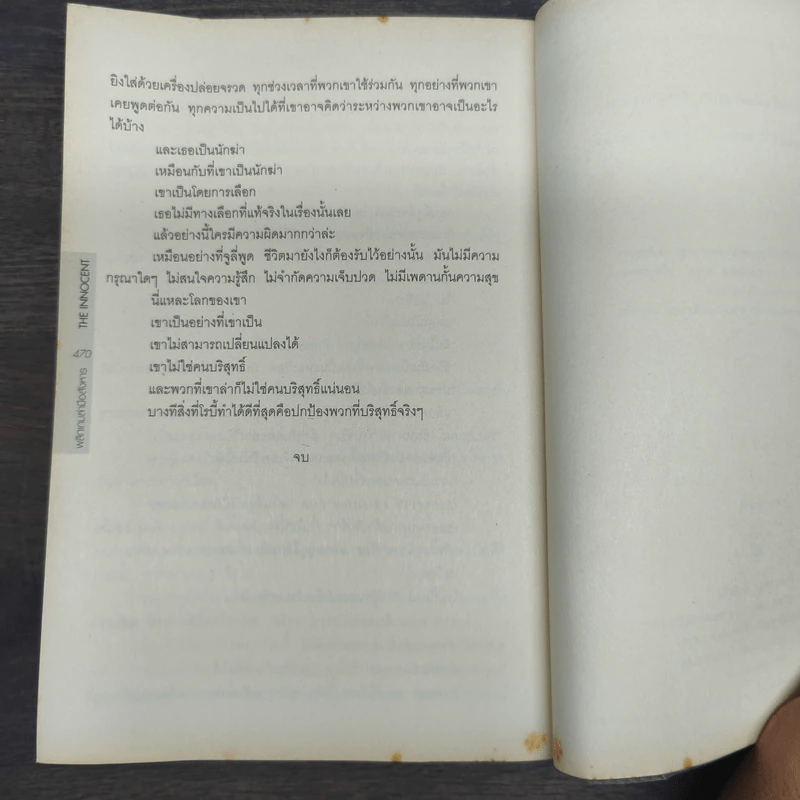 ยิงใส่ด้วยเครื่องปล่อยจรวด ทุกช่วงเวลาที่พวกเขาใช้ร่วมกัน ทุกอย่างที่พวกเขา
เคยพูดต่อกัน ทุกความเป็นไปได้ที่เขาอาจคิดว่าระหว่างพวกเขาอาจเป็นอะไร
ได้บ้าง
และเธอเป็นนักฆ่า
เหมือนกับที่เขาเป็นนักฆ่า
เขาเป็นโดยการเลือก
เธอไม่มีทางเลือกที่แท้จริงในเรื่องนั้นเลย
แล้วอย่างนี้ใครมีความผิดมากกว่าล่ะ
เหมือนอย่างที่จูลี่พูด ชีวิตมายังไงก็ต้องรับไว้อย่างนั้น มันไม่มีความ
กรุณาใดๆ ไม่สนใจความรู้สึก ไม่จำกัดความเจ็บปวด ไม่มีเพดานกั้นความสุข
นี่แหละโลกของเขา
เขาเป็นอย่างที่เขาเป็น
เขาไม่สามารถเปลี่ยนแปลงได้
เขาไม่ใช่คนบริสุทธิ์
และพวกที่เขาล่าก็ไม่ใช่คนบริสุทธิ์แน่นอน
บางทีสิ่งที่โรบี้ทำได้ดีที่สุดคือปกป้องพวกที่บริสุทธิ์จริงๆ
จบ
พลิกเกมล่ามือสังหาร 470 THE INNOCENT